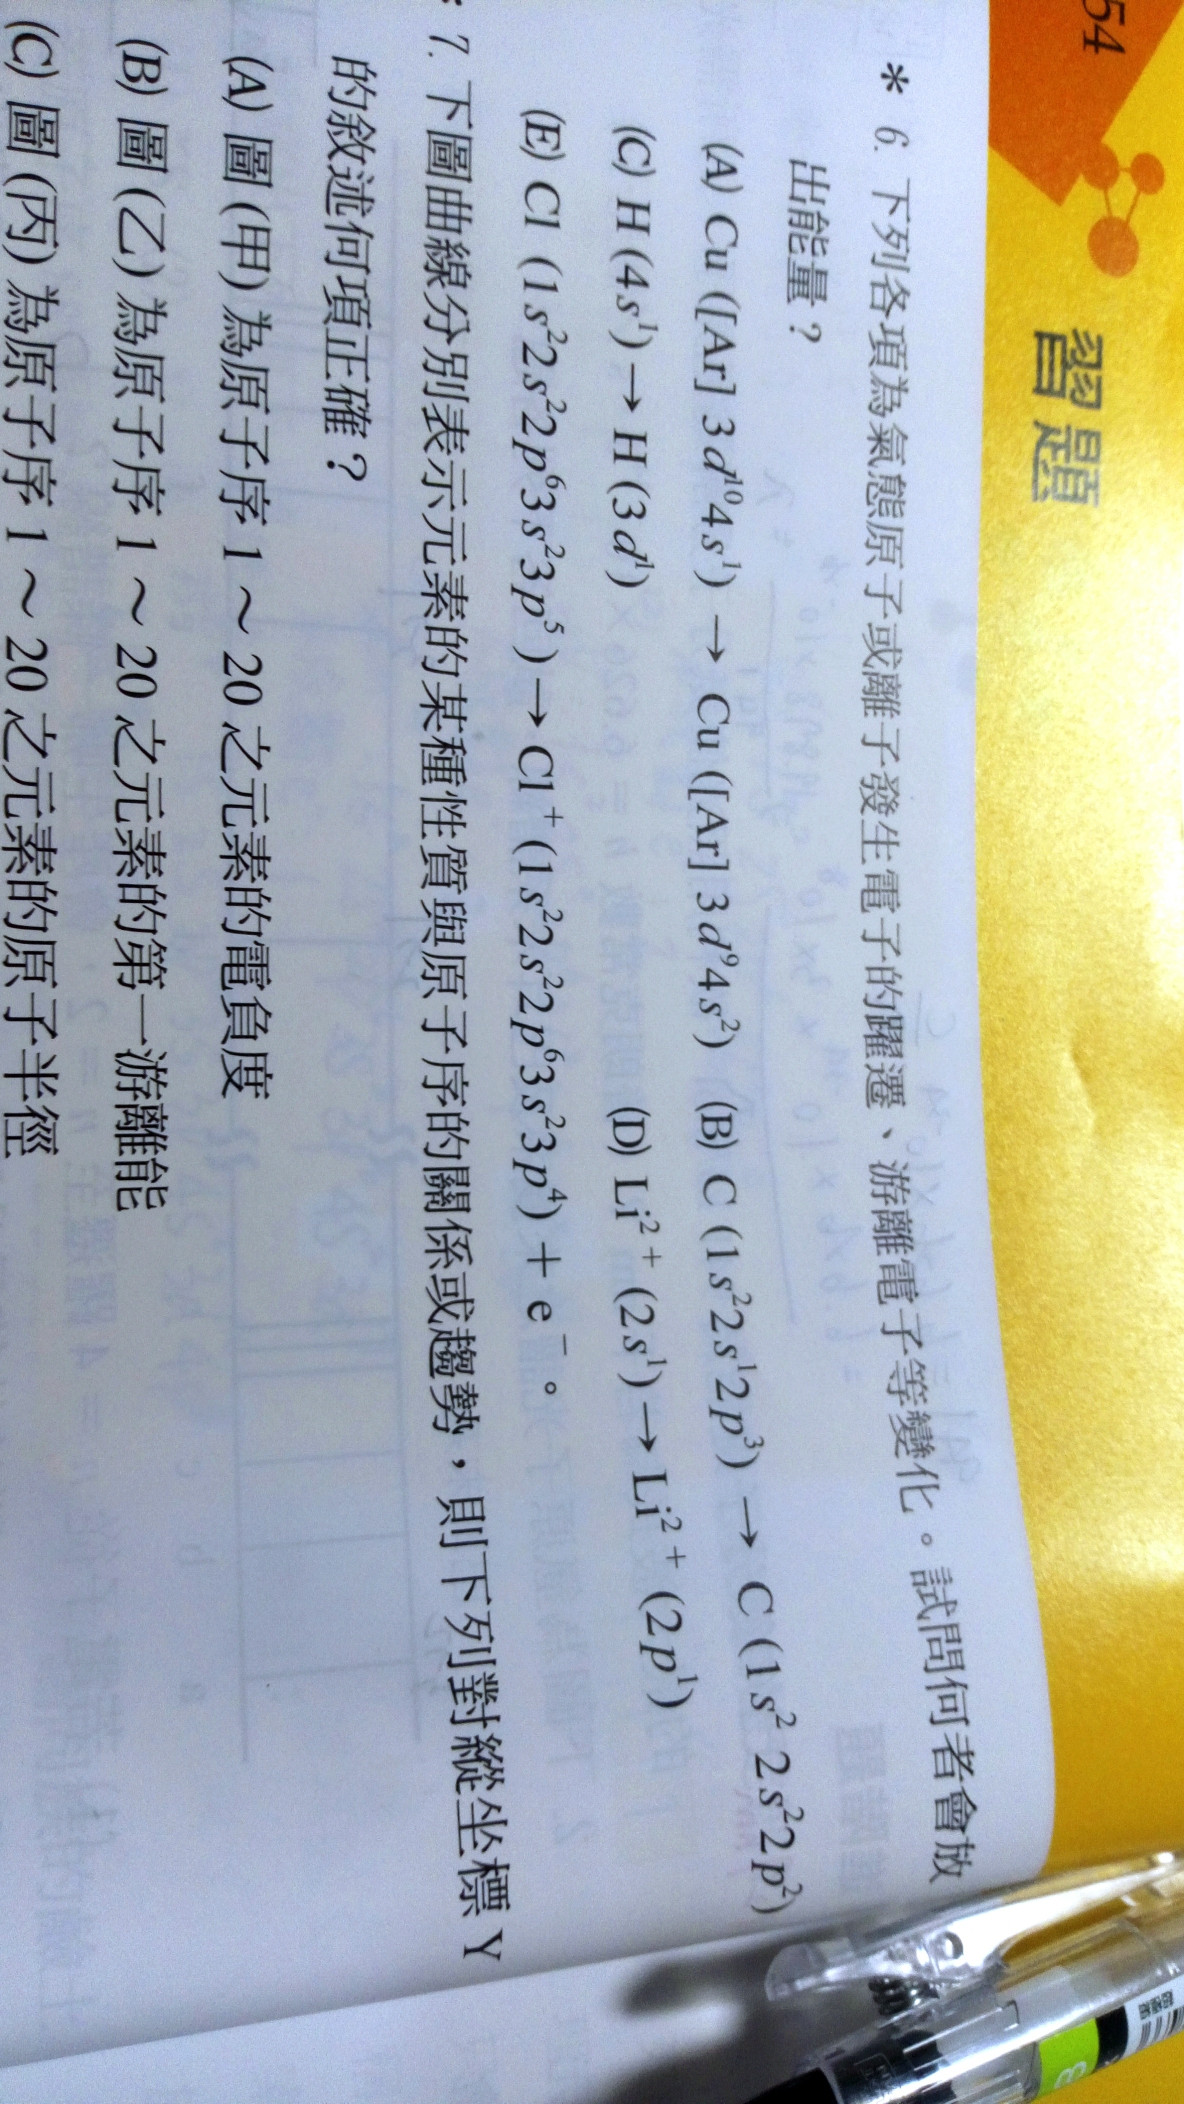 54
習題
* 6. 下列各項為氣態原子或離子發生電子的躍遷、游離電子等變化。試問何者會放
出能量？
(A) Cu ([Ar] 3d¹⁰4s¹) → Cu ([Ar] 3d⁹4s²) (B) C (1s²2s¹2p³) → C (1s² 2s²2p²)
(C) H (4s¹) → H (3d¹) (D) Li²⁺ (2s¹) → Li²⁺ (2p¹)
(E) Cl (1s²2s²2p⁶3s²3p⁵) → Cl⁺ (1s²2s²2p⁶3s²3p⁴) + e⁻。
7. 下圖曲線分別表示元素的某種性質與原子序的關係或趨勢，則下列對縱坐標 Y
的敘述何項正確？
(A) 圖 (甲) 為原子序 1 ~ 20 之元素的電負度
(B) 圖 (乙) 為原子序 1 ~ 20 之元素的第一游離能
(C) 圖 (丙) 為原子序 1 ~ 20 之元素的原子半徑